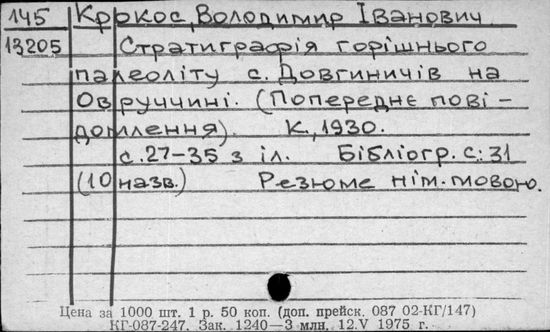 145 Крокос, Володимир Іванович
13205 Стратиграфія горішнього
палеоліту с. Довгиничів на
Овруччині. (Попереднє пові-
домлення). К., 1930.
с. 27–35 з іл. Бібліогр. с: 31
(10 назв.) Резюме нім. мовою.
Цена за 1000 шт. 1 р. 50 коп. (доп. прейск. 087 02-КГ/147)
КГ-087-247. Зак. 1240—3 млн. 12.V 1975 г.